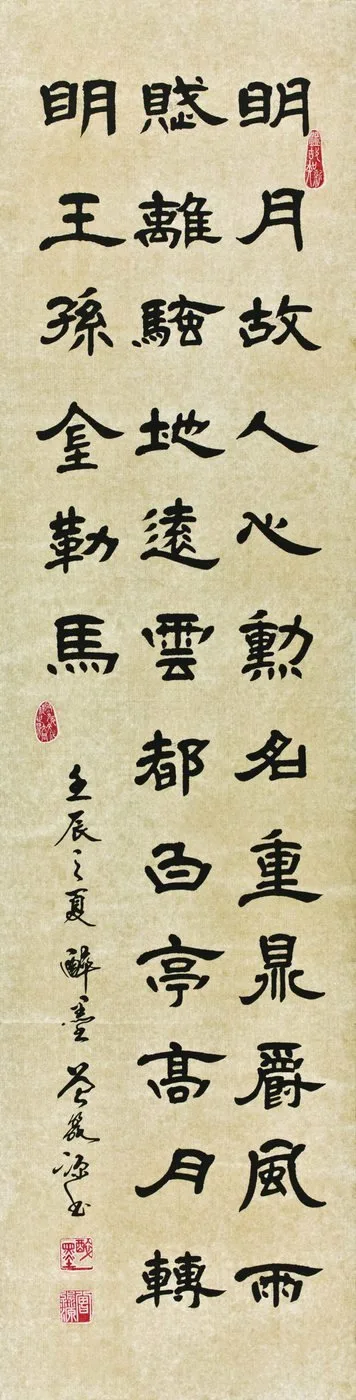 明月故人心勳名重鼎爵風雨
賦離騷地遠雲都百亭高月轉
明王孫金勒馬
壬辰之夏醉墨源書
醉墨